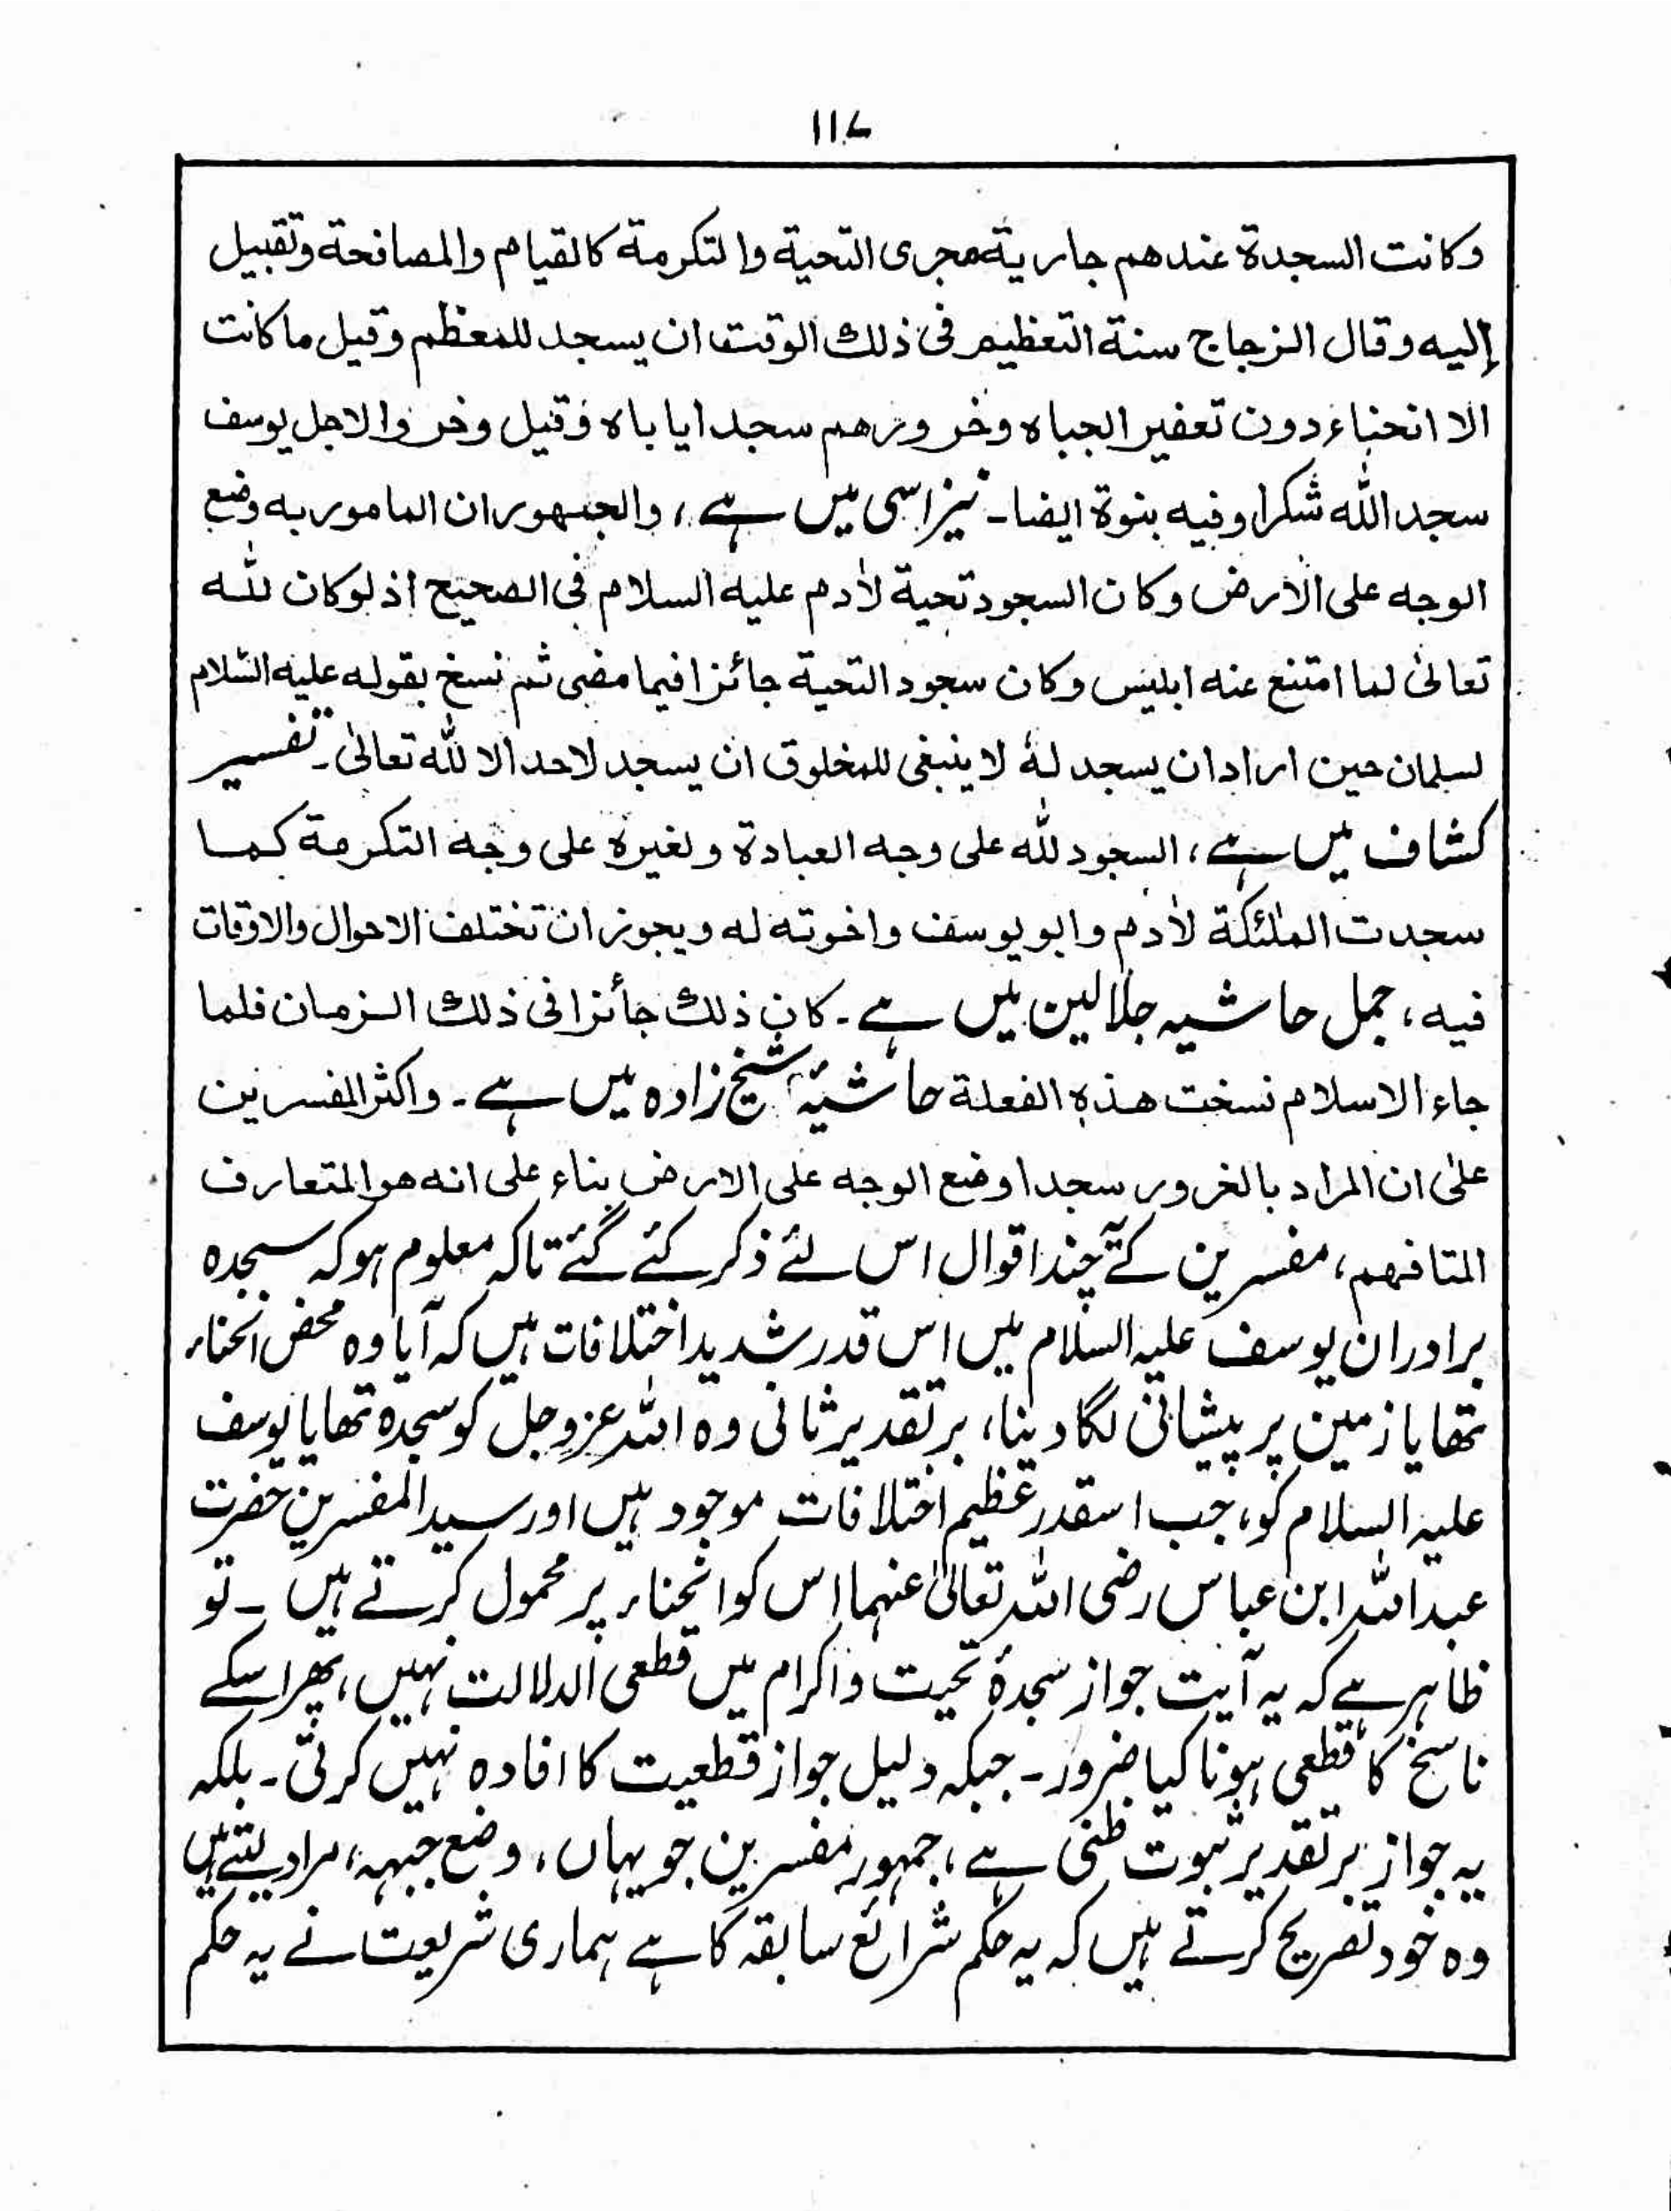 ۱۱۷
وکانت السجدة عندهم جاریة مجری التحیة والتکرمة کالقیام والمصافحة وتقبیل
إلیه وقال الزجاج سنة التعظیم فی ذلك الوقت ان یسجد للمعظم وقیل ما کانت
الا انحناء دون تعفیر الجباه وخرورهم سجدا یاباه وقیل وخروا لاجل یوسف
سجد الله شکرا وفیه بنوة ایضا۔ نیز اسی میں ہے، والجمهور ان المامور به وضع
الوجه علی الارض وکان السجود تحیة لأدم علیه السلام فی الصحیح اذ لوکان لله
تعالیٰ لما امتنع عنه ابلیس وکان سجود التحیة جائزا فیما مضی ثم نسخ بقوله علیه السّلام
لسلمان حین اراد ان یسجد لهٗ لا ینبغی للمخلوق ان یسجد لاحد الا للّٰه تعالیٰ۔ تفسیر
کشاف میں ہے، السجود للّٰه علی وجه العبادة ولغیره علی وجه التکرمة کما
سجدت الملٰئکة لأدم وابو یوسف واخوته له ویجوز ان تختلف الاحوال والاوقات
فیه، جمل حاشیہ جلالین میں ہے۔ کان ذلك جائزا فی ذلك الزمان فلما
جاء الاسلام نسخت هذه الفعلة حاشیۂ شیخ زادہ میں ہے۔ واکثر المفسرین
علیٰ ان المراد بالخرور سجدا وضع الوجه علی الارض بناء علی انه هو المتعارف
المتافهم، مفسرین کے چند اقوال اس لئے ذکر کئے گئے تاکہ معلوم ہو کہ سجدہ
برادران یوسف علیہ السلام میں اس قدر شدید اختلافات ہیں کہ آیا وہ محض انحناء
تھا یا زمین پر پیشانی لگا دینا، بر تقدیر ثانی وہ اللہ عزوجل کو سجدہ تھا یا یوسف
علیہ السلام کو، جب اسقدر عظیم اختلافات موجود ہیں اور سید المفسرین حضرت
عبداللہ ابن عباس رضی اللہ تعالیٰ عنہما اس کو انحناء پر محمول کرتے ہیں ۔ تو
ظاہر ہے کہ یہ آیت جواز سجدۂ تحیت و اکرام میں قطعی الدلالت نہیں، پھر اسکے
ناسخ کا قطعی ہونا کیا ضرور۔ جبکہ دلیل جواز قطعیت کا افادہ نہیں کرتی۔ بلکہ
یہ جواز بر تقدیر ثبوت ظنی ہے، جمہور مفسرین جو یہاں، وضع جبہہ، مراد لیتے ہیں
وہ خود تصریح کرتے ہیں کہ یہ حکم شرائع سابقہ کا ہے ہماری شریعت نے یہ حکم